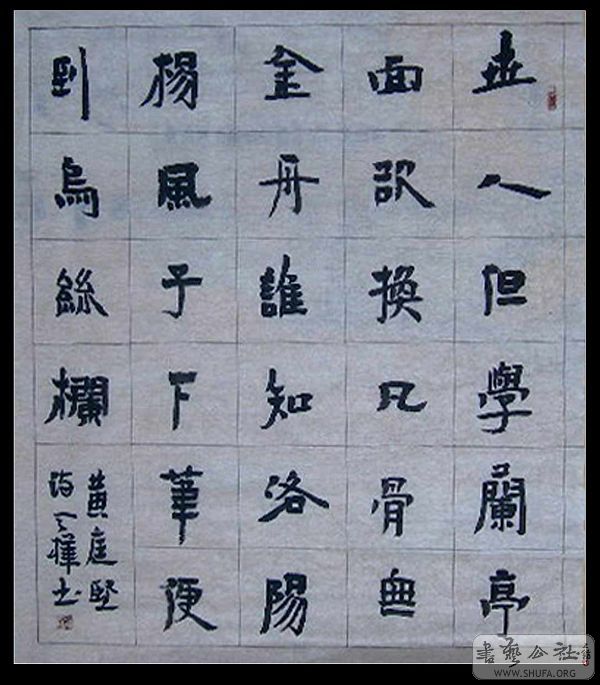 世人但學蘭亭
面欲換凡骨無
金丹誰知洛陽
楊風子下筆便
到烏絲欄
黃庭堅
詩
書
書藝公社
WWW.SHUFA.ORG